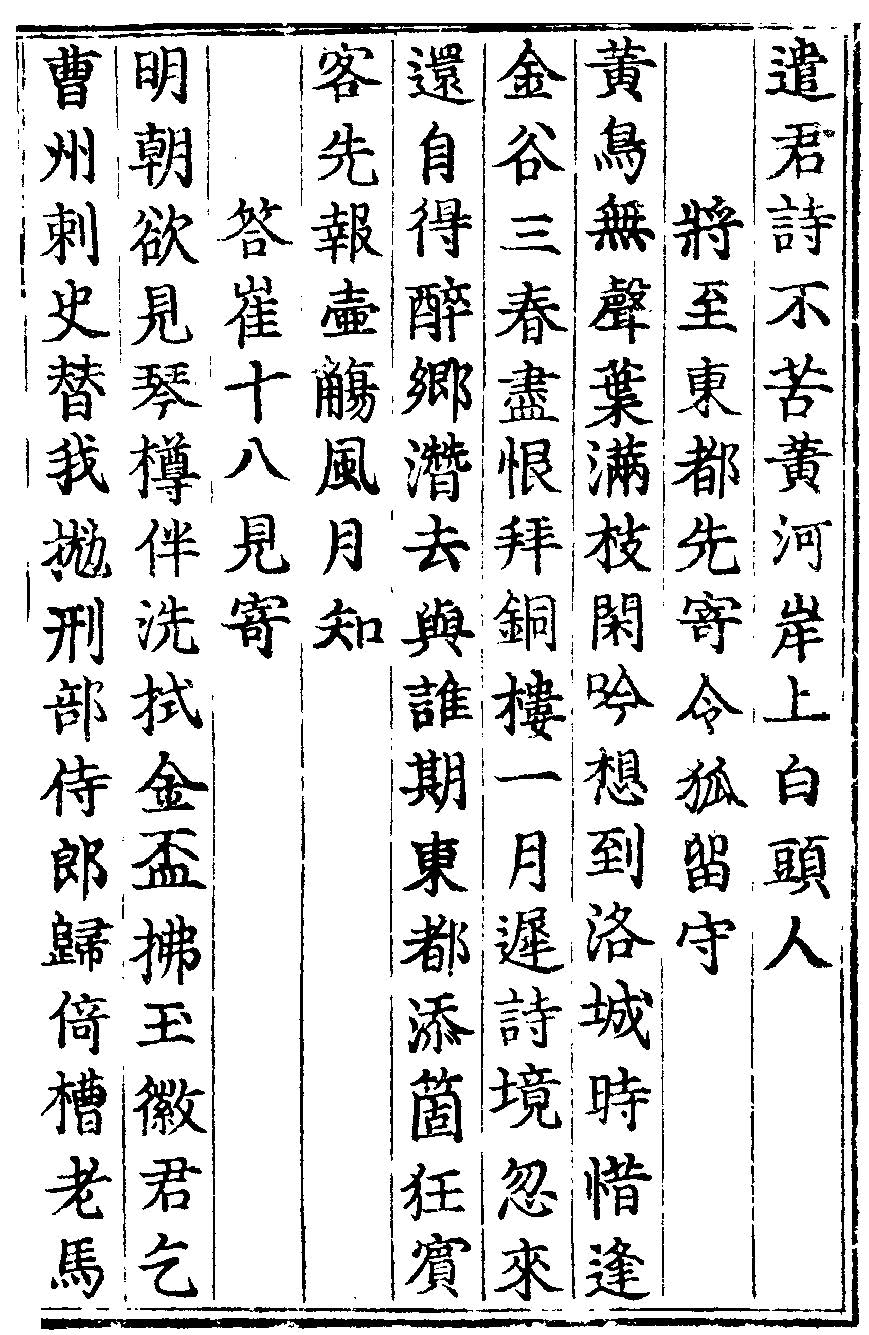 遣君詩不苦黃河岸上白頭人
將至東都先寄令狐留守
黃鳥無聲葉滿枝閑吟想到洛城時惜逢
金谷三春盡恨拜銅樓一月遲詩境忽來
還自得醉鄉潛去與誰期東都添箇狂賓
客先報壷觴風月知
答崔十八見寄
明朝欲見琴樽伴洗拭金盃拂玉徽君乞
曹州刺史替我抛刑部侍郎歸倚槽老馬